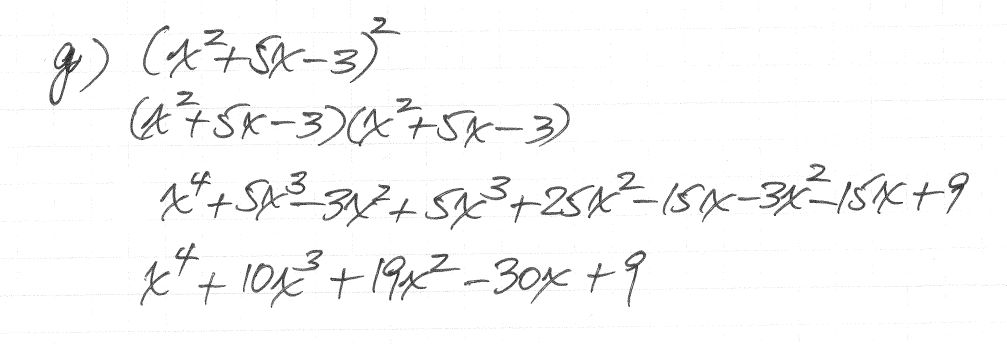 g) (x²+5x-3)²
(x²+5x-3)(x²+5x-3)
x⁴+5x³-3x²+5x³+25x²-15x-3x²-15x+9
x⁴+10x³+19x²-30x+9